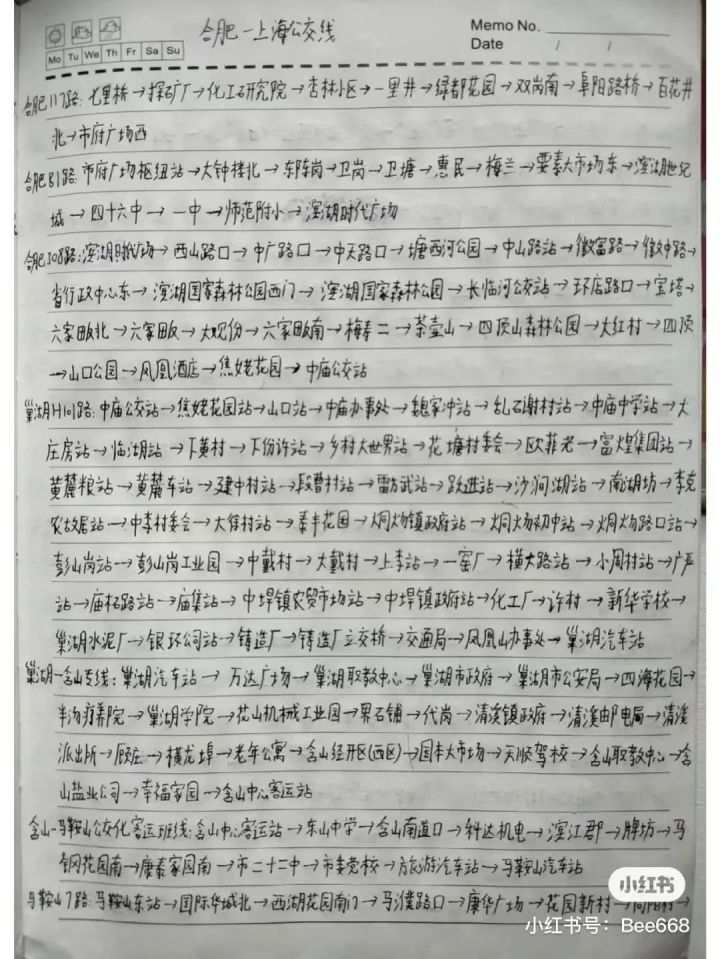 合肥—上海公交线
Memo No.
Mo Tu We Th Fr Sa Su
Date / /
合肥117路:七里桥→探矿厂→化工研究院→杏林小区→一里井→绿都花园→双岗南→阜阳路桥→百花井
北→市府广场西
合肥B1路:市府广场枢纽站→大钟楼北→东陈岗→卫岗→卫塘→惠民→梅兰→要素大市场东→滨湖世纪
城→四十六中→一中→师范附小→滨湖时代广场
合肥508路:滨湖时代广场→西山路口→中广路口→中天路口→塘西河公园→中山路站→徽富路→徽中路→
省行政中心东→滨湖国家森林公园西门→滨湖国家森林公园→长临河公交站→环店路口→宝塔→
六家畈北→六家畈→大观份→六家畈南→梅寿二→茶壶山→四顶山森林公园→大红村→四顶
→山口公园→凤凰酒店→焦姥花园→中庙公交站
巢湖H101路:中庙公交站→焦姥花园站→山口站→中庙办事处→魏家冲站→乱石谢村站→中庙中学站→大
庄房站→临湖站→下黄村→下份许站→乡村大世界站→花塘村委会→欧菲光→富煌集团站→
黄麓粮站→黄麓车站→建中村站→段曹村站→雷武站→跃进站→沙涧湖站→南湖坊→李克
农故居站→中李村委会→大徐村站→泰丰花园→烔炀镇政府站→烔炀初中站→烔炀路口站→
彭山岗站→彭山岗工业园→中戴村→大戴村→上李站→一窑厂→横大路站→小周村站→广严
站→庙石路站→庙集站→中垾镇农贸市场站→中垾镇政府站→化工厂→许村→新华学校→
巢湖水泥厂→银环公司站→铸造厂→铸造厂立交桥→交通局→凤凰山办事处→巢湖汽车站
巢湖—含山专线:巢湖汽车站→万达广场→巢湖职教中心→巢湖市政府→巢湖市公安局→四海花园→
半汤疗养院→巢湖学院→花山机械工业园→界石铺→代岗→清溪镇政府→清溪邮电局→清溪
派出所→顾庄→横龙埠→老年公寓→含山经开区(西区)→国本大市场→天顺驾校→含山职教中心→含
山盐业公司→幸福家园→含山中心客运站
含山—马鞍山公交化客运班线:含山中心客运站→东山中学→含山南道口→科达机电→滨江郡→牌坊→马
钢花园南→康泰家园南→市二十二中→市委党校→方旅游汽车站→马鞍山汽车站
马鞍山7路:马鞍山东站→国际华城北→西湖花园南门→马濮路口→康华广场→花园新村→向阳村→
小红书
小红书号:Bee668